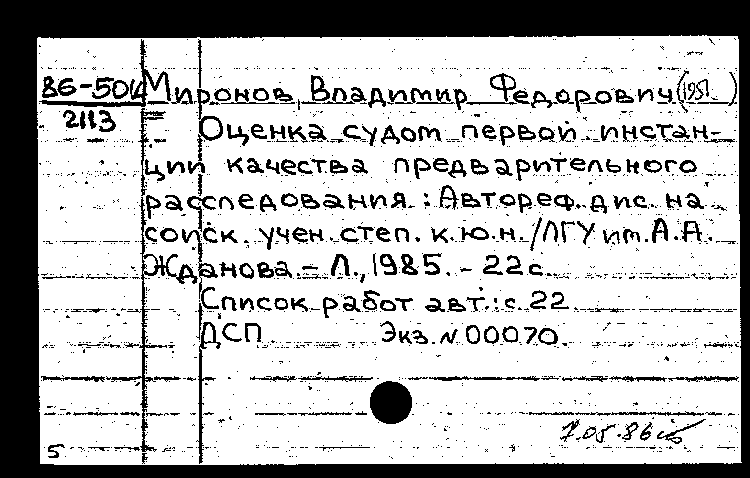 86-504 Миронов, Владимир Федорович (1951 )
2113
Оценка судом первой инстан-
ции качества предварительного
расследования : Автореф. дис. на
соиск. учен. степ. к.ю.н. /ЛГУ им. А.А.
Жданова. - Л., 1985. - 22 с.
Список работ авт.: с. 22
ДСП Экз. № 00070.
7.05.86
5